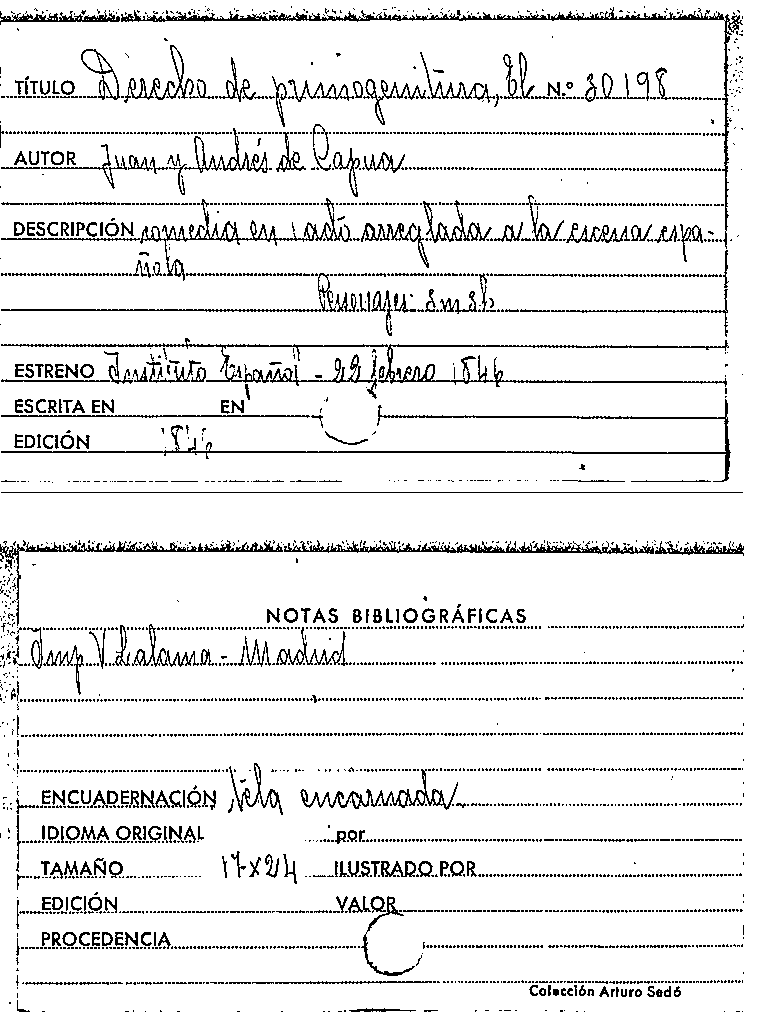 TÍTULO Derecho de primogenitura, El N.º 30198
AUTOR Juan y Andrés de Capua
DESCRIPCIÓN comedia en 1 acto arreglada a la escena espa-
ñola
Personajes: 5m 3h
ESTRENO Instituto Español - 22 febrero 1846
ESCRITA EN EN
EDICIÓN 1846
NOTAS BIBLIOGRÁFICAS
Imp V. Lalama - Madrid
ENCUADERNACIÓN tela encarnada
IDIOMA ORIGINAL por
TAMAÑO 17x24 ILUSTRADO POR
EDICIÓN VALOR
PROCEDENCIA
Colección Arturo Sedó